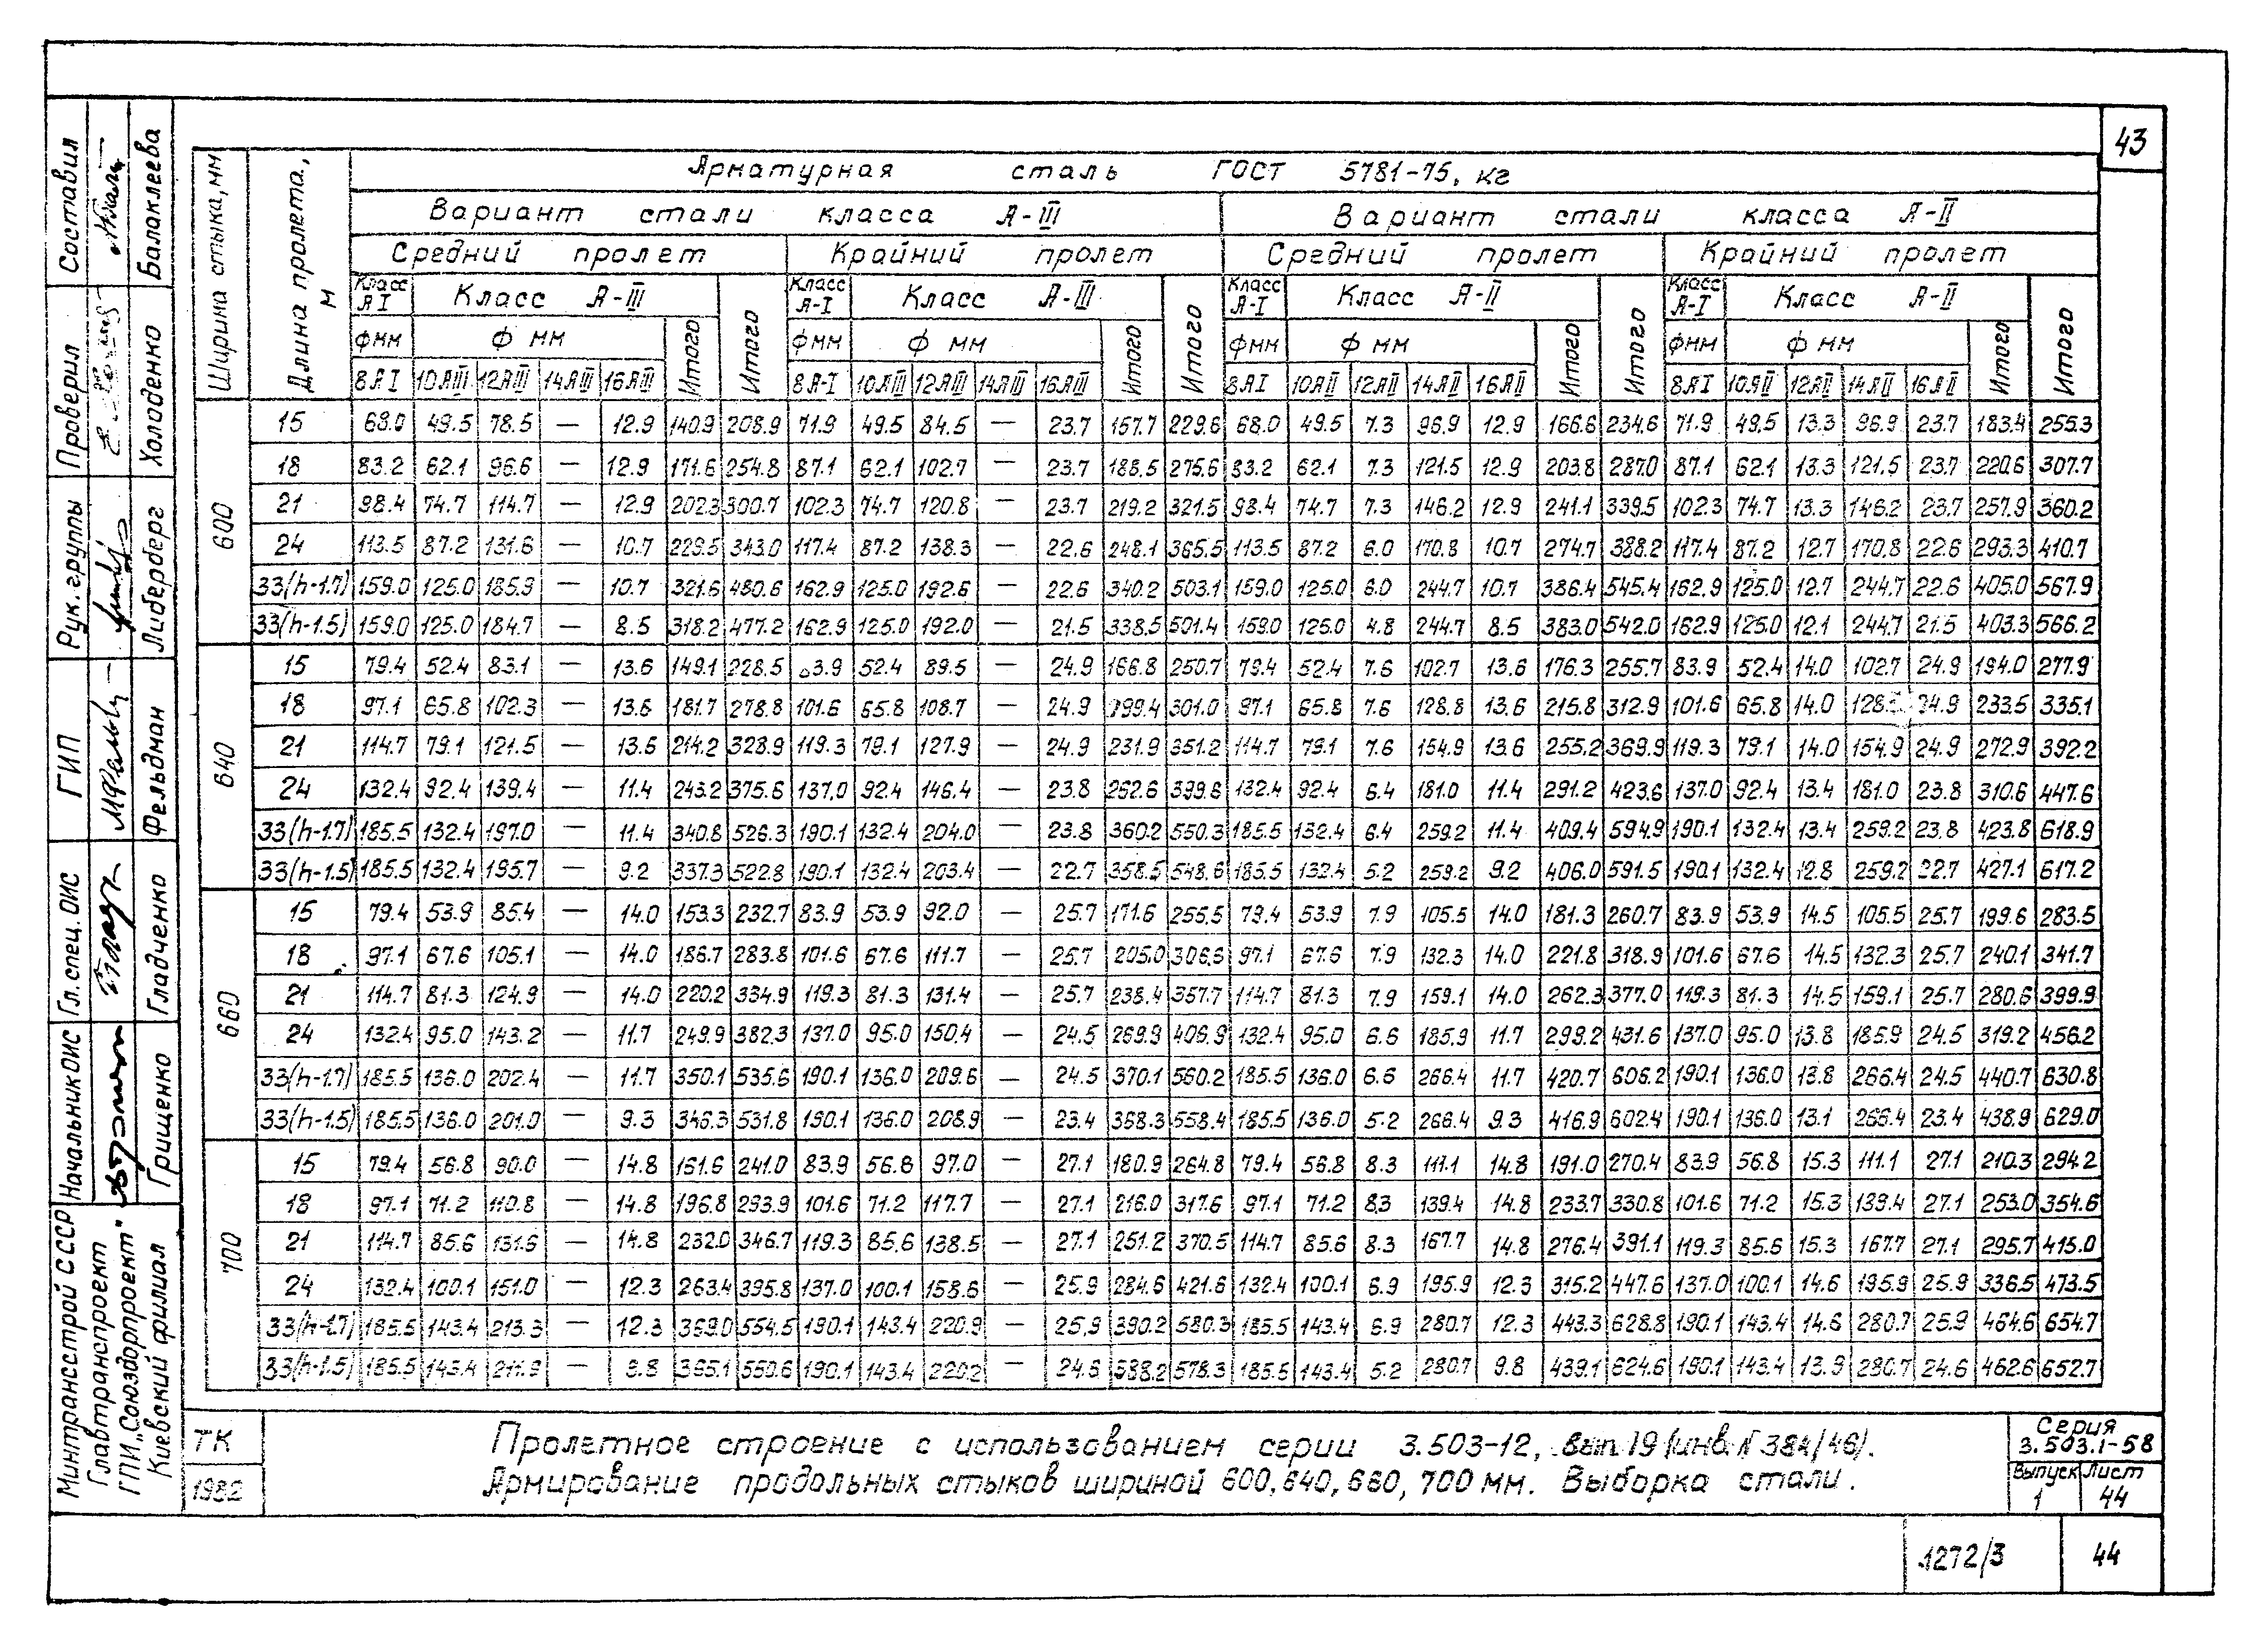 43
Арматурная сталь ГОСТ 5781-75, кг
Вариант стали класса А-III Вариант стали класса А-II
Средний пролет Крайний пролет Средний пролет Крайний пролет
Ширина стыка, мм Длина пролета, м Класс АI Класс А-III Итого Класс А-I Класс А-III Итого Класс А-I Класс А-II Итого Класс А-I Класс А-II Итого
Фмм Ф мм Итого Фмм Ф мм Итого Фмм Ф мм Итого Фмм Ф мм Итого
8АI 10АIII 12АIII 14АIII 16АIII 8А-I 10АIII 12АIII 14АIII 16АIII 8АI 10АII 12АII 14АII 16АII 8АI 10АII 12АII 14АII 16АII
600
15 68.0 49.5 78.5 — 12.9 140.9 208.9 71.9 49.5 84.5 — 23.7 157.7 229.6 68.0 49.5 7.3 96.9 12.9 166.6 234.6 71.9 49.5 13.3 96.9 23.7 183.4 255.3
18 83.2 62.1 96.6 — 12.9 171.6 254.8 87.1 62.1 102.7 — 23.7 188.5 275.6 83.2 62.1 7.3 121.5 12.9 203.8 287.0 87.1 62.1 13.3 121.5 23.7 220.6 307.7
21 98.4 74.7 114.7 — 12.9 202.3 300.7 102.3 74.7 120.8 — 23.7 219.2 321.5 98.4 74.7 7.3 146.2 12.9 241.1 339.5 102.3 74.7 13.3 146.2 23.7 257.9 360.2
24 113.5 87.2 131.6 — 10.7 229.5 343.0 117.4 87.2 138.3 — 22.6 248.1 365.5 113.5 87.2 6.0 170.8 10.7 274.7 388.2 117.4 87.2 12.7 170.8 22.6 293.3 410.7
33(h-1.7) 159.0 125.0 185.9 — 10.7 321.6 480.6 162.9 125.0 192.6 — 22.6 340.2 503.1 159.0 125.0 6.0 244.7 10.7 386.4 545.4 162.9 125.0 12.7 244.7 22.6 405.0 567.9
33(h-1.5) 159.0 125.0 184.7 — 8.5 318.2 477.2 162.9 125.0 192.0 — 21.5 338.5 501.4 159.0 125.0 4.8 244.7 8.5 383.0 542.0 162.9 125.0 12.1 244.7 21.5 403.3 566.2
640
15 79.4 52.4 83.1 — 13.6 149.1 228.5 52.4 89.5 — 24.9 166.8 250.7 79.4 52.4 7.6 102.7 13.6 176.3 255.7 83.9 52.4 14.0 102.7 24.9 194.0 277.9
18 97.1 65.8 102.3 — 13.6 181.7 278.8 101.6 65.8 108.7 — 24.9 199.4 301.0 97.1 65.8 7.6 128.8 13.6 215.8 312.9 101.6 65.8 14.0 233.5 335.1
21 114.7 79.1 121.5 — 13.6 214.2 328.9 119.3 79.1 127.9 — 24.9 231.9 351.2 114.7 79.1 7.6 154.9 13.6 255.2 369.9 119.3 79.1 14.0 154.9 24.9 272.9 392.2
24 132.4 92.4 139.4 — 11.4 243.2 375.6 137.0 92.4 146.4 — 23.8 262.6 399.6 132.4 92.4 6.4 181.0 11.4 291.2 423.6 137.0 92.4 13.4 181.0 23.8 310.6 447.6
33(h-1.7) 185.5 132.4 197.0 — 11.4 340.8 526.3 190.1 132.4 204.0 — 23.8 360.2 550.3 185.5 132.4 6.4 259.2 11.4 409.4 594.9 190.1 132.4 13.4 259.2 23.8 423.8 618.9
33(h-1.5) 185.5 132.4 195.7 — 9.2 337.3 522.8 190.1 132.4 203.4 — 22.7 358.5 548.6 185.5 132.4 5.2 259.2 9.2 406.0 591.5 190.1 132.4 12.8 259.2 22.7 427.1 617.2
660
15 79.4 53.9 85.4 — 14.0 153.3 232.7 83.9 53.9 92.0 — 25.7 171.6 255.5 79.4 53.9 7.9 105.5 14.0 181.3 260.7 83.9 53.9 14.5 105.5 25.7 199.6 283.5
18 97.1 67.6 105.1 — 14.0 186.7 283.8 101.6 67.6 111.7 — 25.7 205.0 306.6 97.1 67.6 7.9 132.3 14.0 221.8 318.9 101.6 67.6 14.5 132.3 25.7 240.1 341.7
21 114.7 81.3 124.9 — 14.0 220.2 334.9 119.3 81.3 131.4 — 25.7 238.4 357.7 114.7 81.3 7.9 159.1 14.0 262.3 377.0 119.3 81.3 14.5 159.1 25.7 280.6 399.9
24 132.4 95.0 143.2 — 11.7 249.9 382.3 137.0 95.0 150.4 — 24.5 269.9 406.9 132.4 95.0 6.6 185.9 11.7 299.2 431.6 137.0 95.0 13.8 185.9 24.5 319.2 456.2
33(h-1.7) 185.5 136.0 202.4 — 11.7 350.1 535.6 190.1 136.0 209.6 — 24.5 370.1 560.2 185.5 136.0 6.6 266.4 11.7 420.7 606.2 190.1 136.0 13.8 266.4 24.5 440.7 630.8
33(h-1.5) 185.5 136.0 201.0 9.3 346.3 531.8 190.1 136.0 208.9 — 23.4 368.3 558.4 185.5 136.0 5.2 266.4 9.3 416.9 602.4 190.1 136.0 13.1 266.4 23.4 438.9 629.0
700
15 79.4 56.8 90.0 — 14.8 161.6 241.0 83.9 56.8 97.0 — 27.1 180.9 264.8 79.4 56.8 8.3 111.1 14.8 191.0 270.4 83.9 56.8 15.3 111.1 27.1 210.3 294.2
18 97.1 71.2 110.8 — 14.8 196.8 293.9 101.6 71.2 117.7 — 27.1 216.0 317.6 97.1 71.2 8.3 139.4 14.8 233.7 330.8 101.6 71.2 15.3 139.4 27.1 253.0 354.6
21 114.7 85.6 131.6 — 14.8 232.0 346.7 119.3 85.6 138.5 — 27.1 251.2 370.5 114.7 85.6 8.3 167.7 14.8 276.4 391.1 119.3 85.6 15.3 167.7 27.1 295.7 415.0
24 132.4 100.1 151.0 — 12.3 263.4 395.8 137.0 100.1 158.6 — 25.9 284.6 421.6 132.4 100.1 6.9 195.9 12.3 315.2 447.6 137.0 100.1 14.6 195.9 25.9 336.5 473.5
33(h-1.7) 185.5 143.4 213.3 — 12.3 369.0 554.5 190.1 143.4 220.9 — 25.9 390.2 580.3 185.5 143.4 6.9 280.7 12.3 443.3 628.8 190.1 143.4 14.6 280.7 25.9 464.6 654.7
33(h-1.5) 185.5 143.4 211.9 — 9.8 365.1 550.6 190.1 143.4 220.2 — 24.6 388.2 578.3 185.5 143.4 5.2 280.7 9.8 439.1 624.6 190.1 143.4 13.9 280.7 24.6 462.6 652.7
ТК
1982
Пролетное строение с использованием серии 3.503-12, вып 19 (инв. N 384/46).
Армирование продольных стыков шириной 600, 640, 660, 700 мм. Выборка стали.
Серия
3.503.1-58
Выпуск Лист
1 44
1272/3 44
Составил Балаклеева
Проверил Холоденко
Рук. группы Либерберг
ГИП Фельдман
Гл. спец. ОИС Гладченко
Начальник ОИС Грищенко
Минтрансстрой СССР
Главтранспроект
ГПИ „Союздорпроект"
Киевский филиал